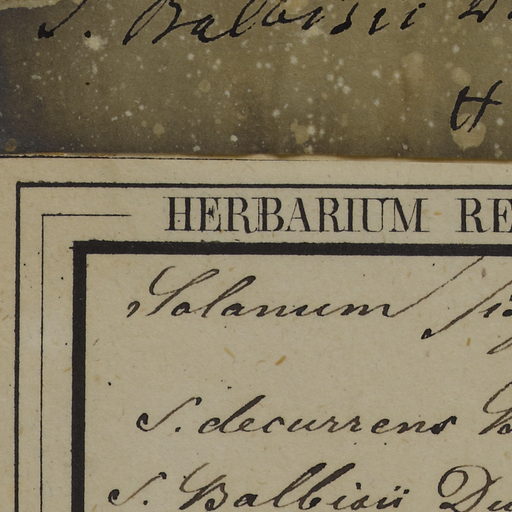 S. Balbisii D
H
HERBARIUM RE
Solanum
S. decurrens B
S. Balbisii Du